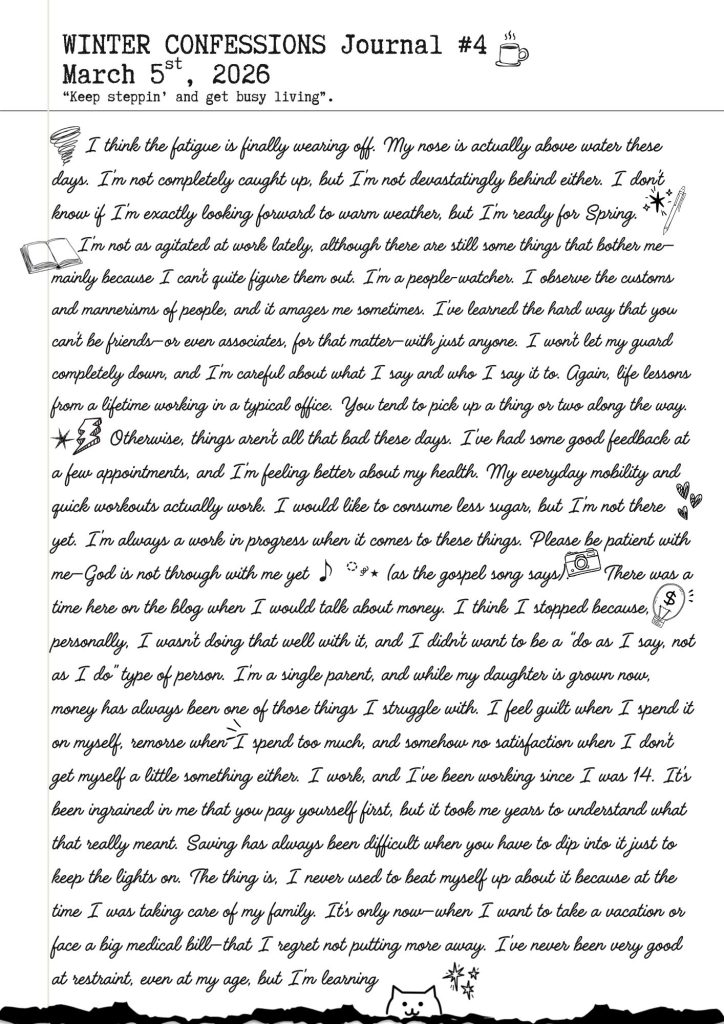 WINTER CONFESSIONS Journal #4
March 5st, 2026
“Keep steppin’ and get busy living”.
I think the fatigue is finally wearing off. My nose is actually above water these
days. I'm not completely caught up, but I'm not devastatingly behind either. I don't
know if I'm exactly looking forward to warm weather, but I'm ready for Spring.
I'm not as agitated at work lately, although there are still some things that bother me—
mainly because I can't quite figure them out. I'm a people-watcher. I observe the customs
and mannerisms of people, and it amazes me sometimes. I've learned the hard way that you
can't be friends—or even associates, for that matter—with just anyone. I won't let my guard
completely down, and I'm careful about what I say and who I say it to. Again, life lessons
from a lifetime working in a typical office. You tend to pick up a thing or two along the way.
Otherwise, things aren't all that bad these days. I've had some good feedback at
a few appointments, and I'm feeling better about my health. My everyday mobility and
quick workouts actually work. I would like to consume less sugar, but I'm not there
yet. I'm always a work in progress when it comes to these things. Please be patient with
me—God is not through with me yet (as the gospel song says) There was a
time here on the blog when I would talk about money. I think I stopped because, $
personally, I wasn't doing that well with it, and I didn't want to be a "do as I say, not
as I do" type of person. I'm a single parent, and while my daughter is grown now,
money has always been one of those things I struggle with. I feel guilt when I spend it
on myself, remorse when I spend too much, and somehow no satisfaction when I don't
get myself a little something either. I work, and I've been working since I was 14. It's
been ingrained in me that you pay yourself first, but it took me years to understand what
that really meant. Saving has always been difficult when you have to dip into it just to
keep the lights on. The thing is, I never used to beat myself up about it because at the
time I was taking care of my family. It's only now—when I want to take a vacation or
face a big medical bill—that I regret not putting more away. I've never been very good
at restraint, even at my age, but I'm learning